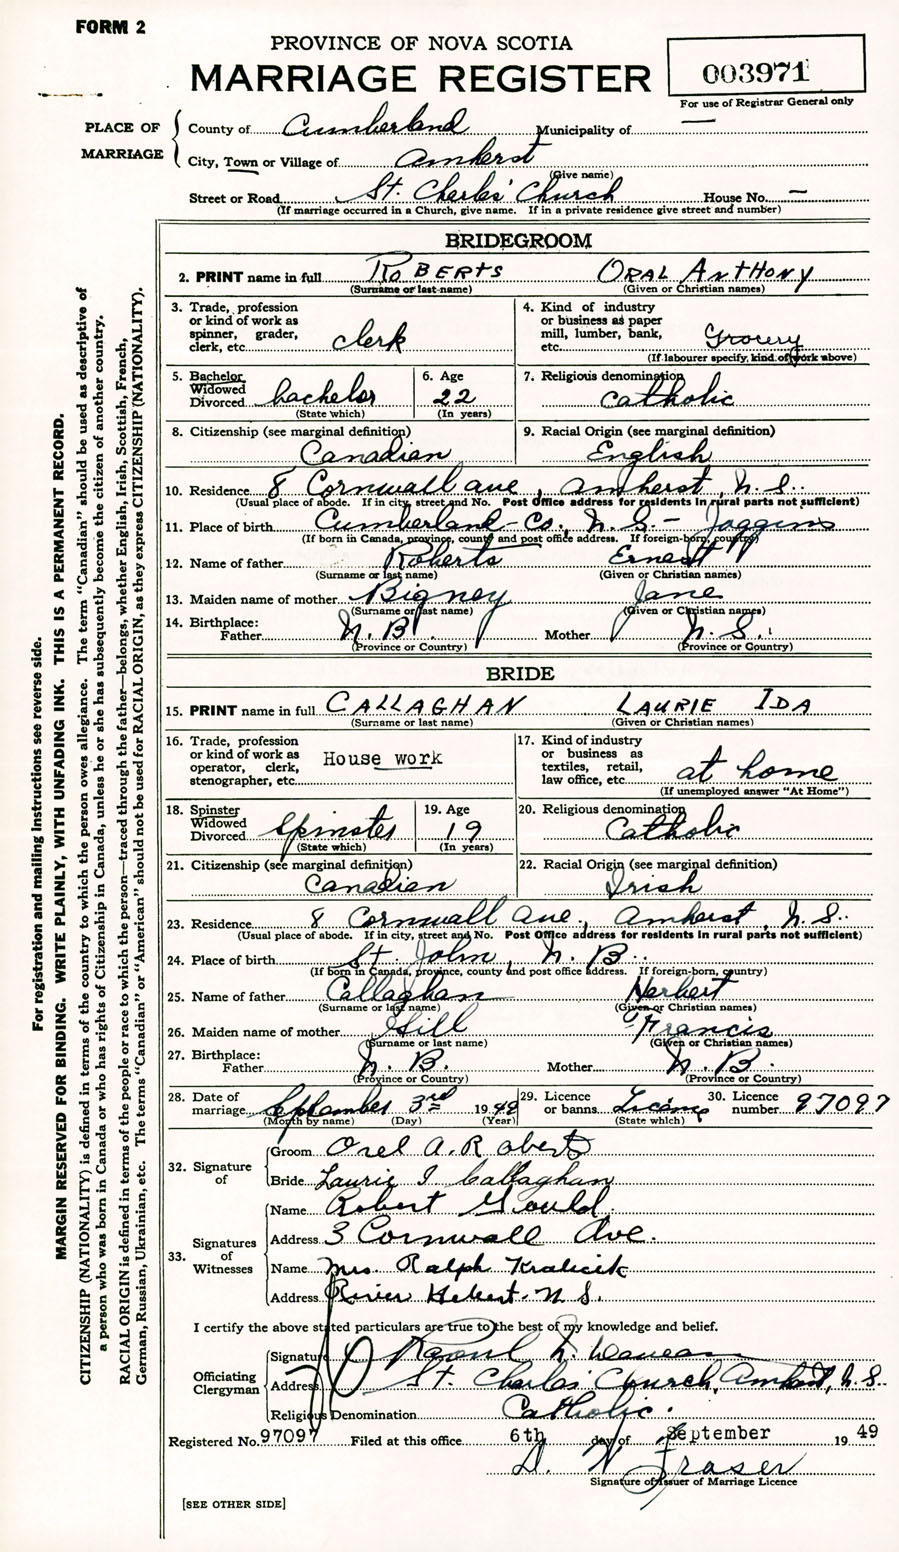 FORM 2
PROVINCE OF NOVA SCOTIA
MARRIAGE REGISTER
003971
For use of Registrar General only
PLACE OF MARRIAGE
County of Cumberland Municipality of —
City, Town or Village of Amherst
(Give name)
Street or Road St. Charles' Church House No. —
(If marriage occurred in a Church, give name. If in a private residence give street and number)
BRIDEGROOM
2. PRINT name in full ROBERTS ORAL ANTHONY
(Surname or last name) (Given or Christian names)
3. Trade, profession or kind of work as spinner, grader, clerk, etc. clerk
4. Kind of industry or business as paper mill, lumber, bank, etc. Grocery
(If labourer specify, kind of work above)
5. Bachelor Widowed Divorced bachelor
(State which)
6. Age 22
(In years)
7. Religious denomination Catholic
8. Citizenship (see marginal definition) Canadian
9. Racial Origin (see marginal definition) English
10. Residence 8 Cornwall ave, Amherst, N.S.
(Usual place of abode. If in city, street and No. Post Office address for residents in rural parts not sufficient)
11. Place of birth Cumberland Co, N.S. - Joggins
(If born in Canada, province, county and post office address. If foreign-born, country)
12. Name of father Roberts Ernest
(Surname or last name) (Given or Christian names)
13. Maiden name of mother Bigney Jane
(Surname or last name) (Given or Christian names)
14. Birthplace:
Father N.B. Mother N.S.
(Province or Country) (Province or Country)
BRIDE
15. PRINT name in full CALLAGHAN LAURIE IDA
(Surname or last name) (Given or Christian names)
16. Trade, profession or kind of work as operator, clerk, stenographer, etc. House work
17. Kind of industry or business as textiles, retail, law office, etc. at home
(If unemployed answer "At Home")
18. Spinster Widowed Divorced Spinster
(State which)
19. Age 19
(In years)
20. Religious denomination Catholic
21. Citizenship (see marginal definition) Canadian
22. Racial Origin (see marginal definition) Irish
23. Residence 8 Cornwall Ave., Amherst, N.S.
(Usual place of abode. If in city, street and No. Post Office address for residents in rural parts not sufficient)
24. Place of birth St. John, N.B.
(If born in Canada, province, county and post office address. If foreign-born, country)
25. Name of father Callaghan Herbert
(Surname or last name) (Given or Christian names)
26. Maiden name of mother Gill Francis
(Surname or last name) (Given or Christian names)
27. Birthplace:
Father N.B. Mother N.B.
(Province or Country) (Province or Country)
28. Date of marriage September 3rd 1949
(Month by name) (Day) (Year)
29. Licence or banns Licence
(State which)
30. Licence number 97097
32. Signature of
Groom Orel A. Roberts
Bride Laurie I Callaghan
33. Signatures of Witnesses
Name Robert Gould
Address 3 Cornwall Ave.
Name Mrs Ralph
Address River Hebert. N S.
I certify the above stated particulars are true to the best of my knowledge and belief.
Officiating Clergyman
Signature
Address St. Charles' Church, Amherst, N.S.
Religious Denomination Catholic.
Registered No. 97097 Filed at this office 6th day of September 1949
D. Fraser
Signature of Issuer of Marriage Licence
[SEE OTHER SIDE]
For registration and mailing instructions see reverse side.
MARGIN RESERVED FOR BINDING. WRITE PLAINLY, WITH UNFADING INK. THIS IS A PERMANENT RECORD.
CITIZENSHIP (NATIONALITY) is defined in terms of the country to which the person owes allegiance. The term "Canadian" should be used as descriptive of
a person who was born in Canada or who has rights of Citizenship in Canada, unless he or she has subsequently become the citizen of another country.
RACIAL ORIGIN is defined in terms of the people or race to which the person—traced through the father—belongs, whether English, Irish, Scottish, French,
German, Russian, Ukrainian, etc. The terms "Canadian" or "American" should not be used for RACIAL ORIGIN, as they express CITIZENSHIP (NATIONALITY).